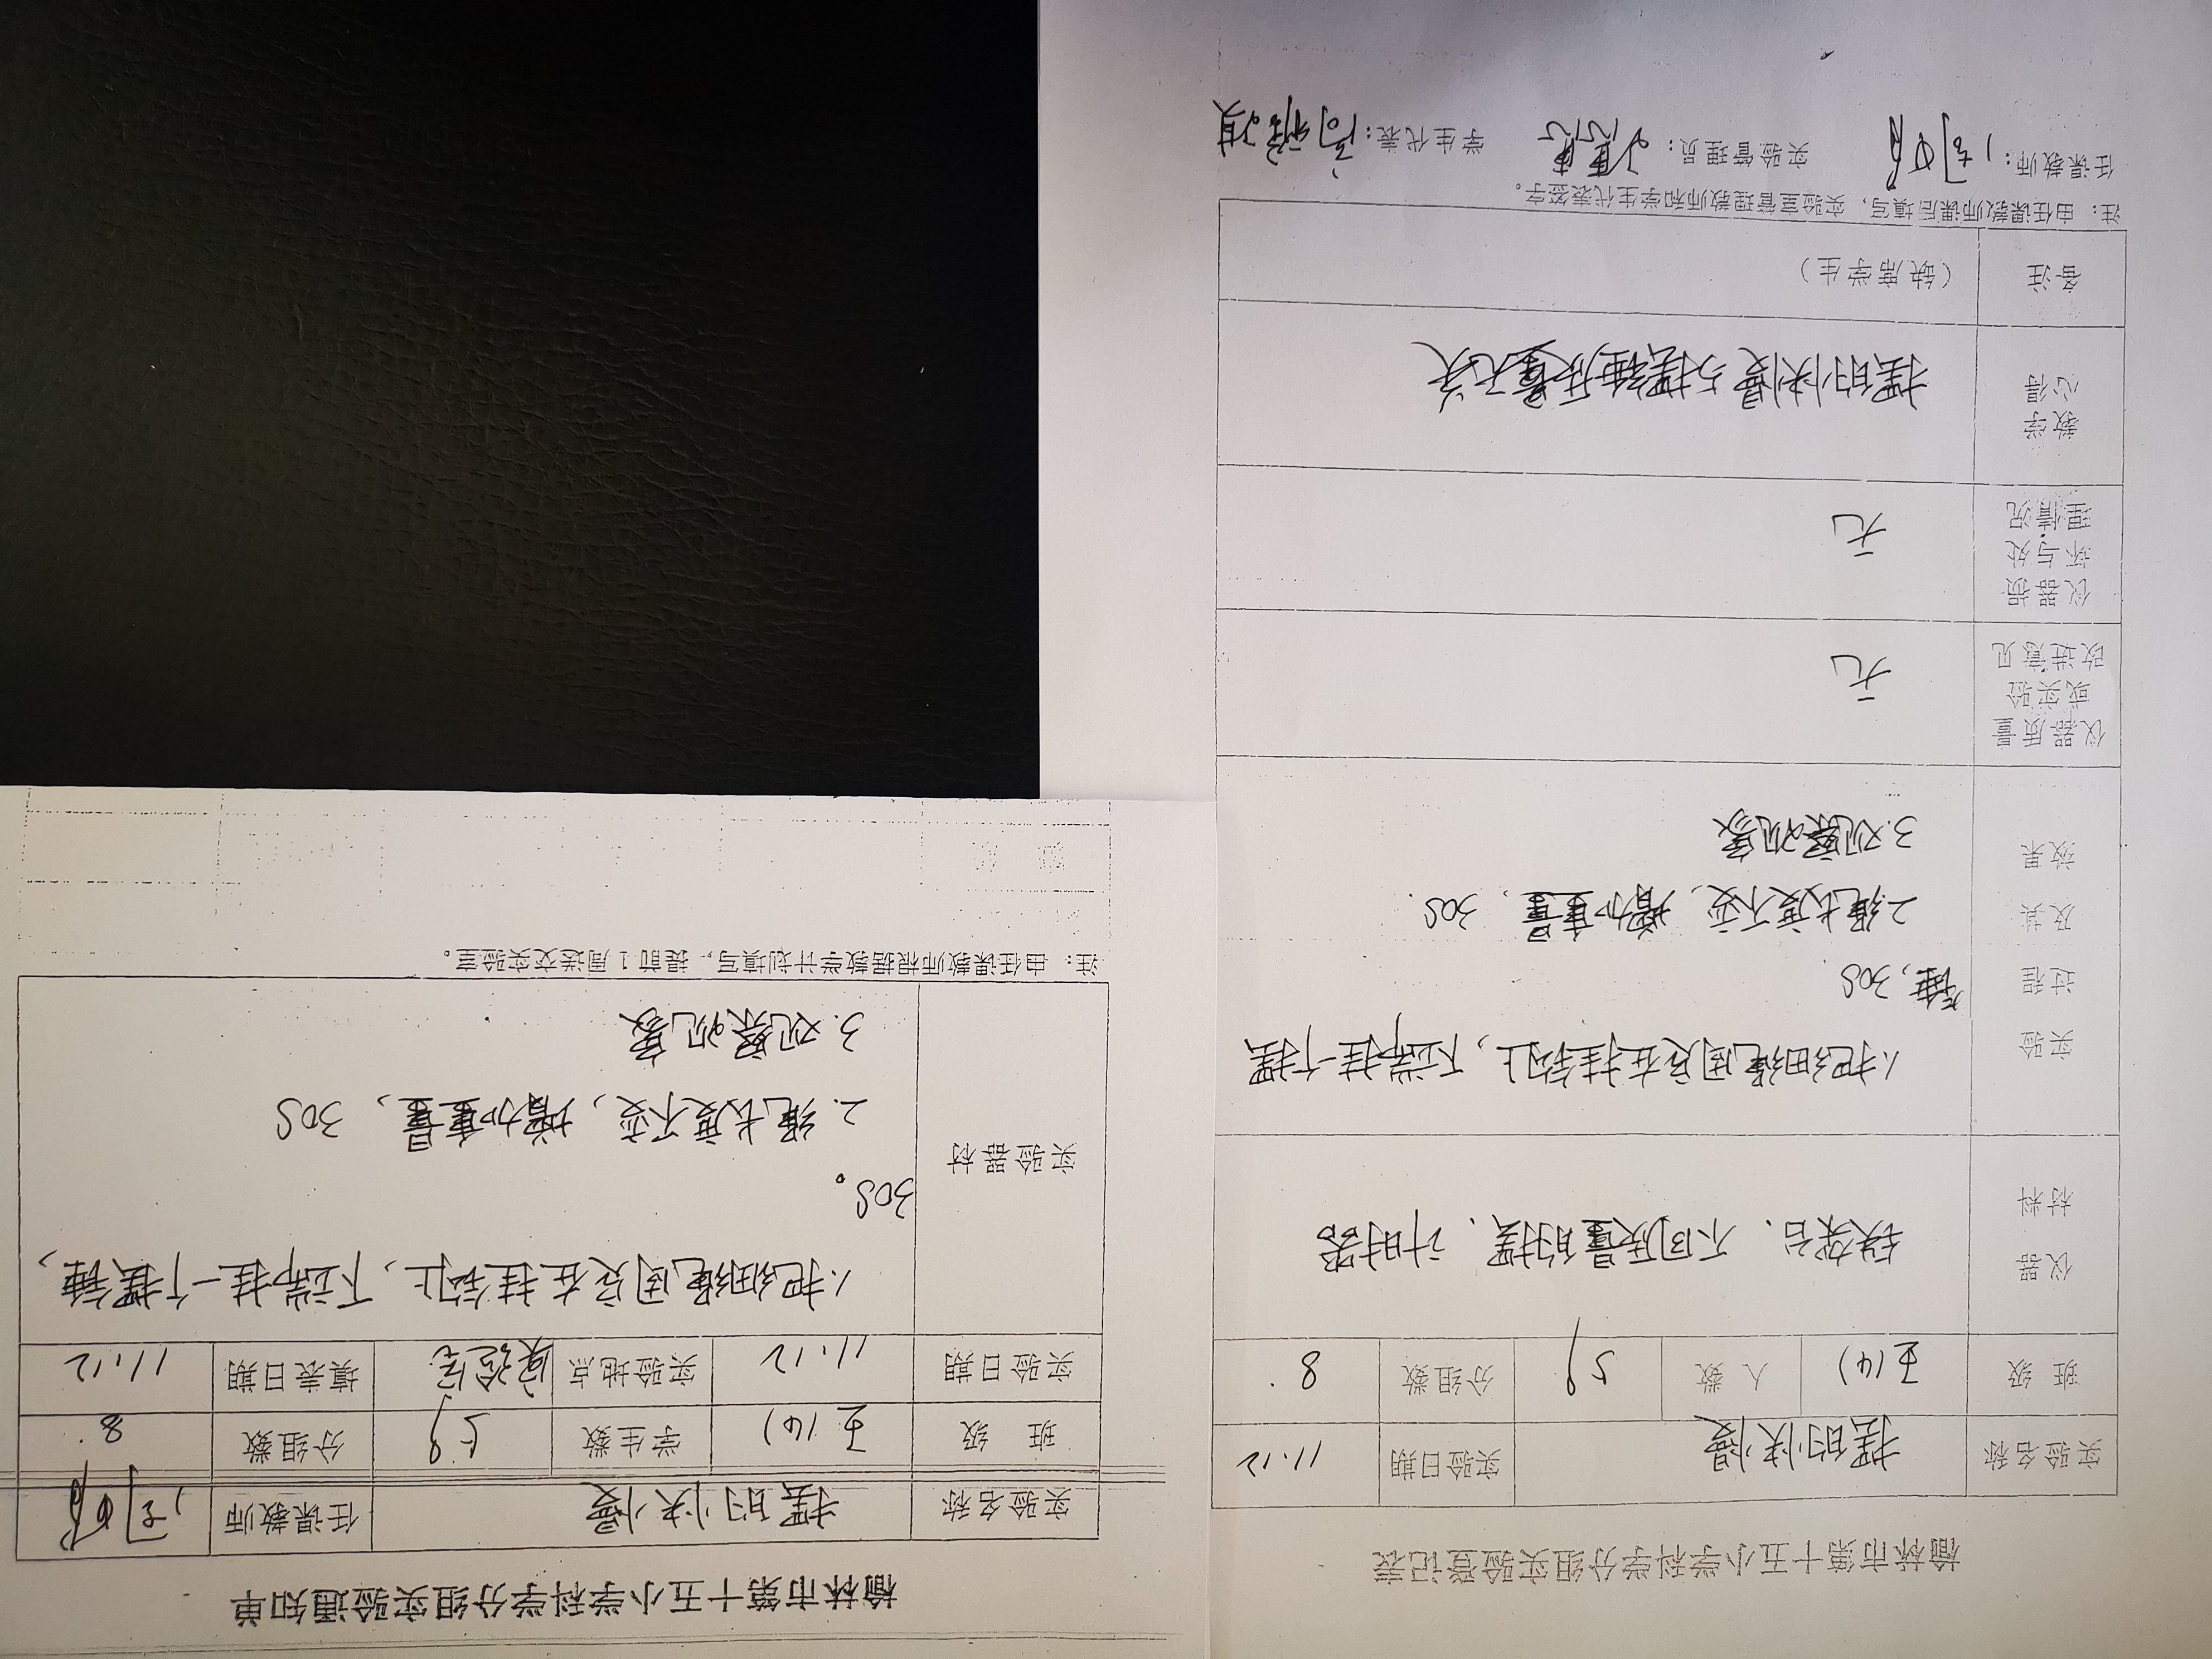 榆林市第十五小学科学分组实验登记表
实验名称 摆的快慢 实验日期 11.12
班 级 五(4) 人 数 59 分组数 8
仪器 材料 铁架台、不同质量的摆、计时器
实验 过程 及其 效果
1.把细绳固定在挂钩上，下端挂一个摆
锤，30S.
2.绳长度不变，增加重量，30S.
3.观察现象
仪器质量 或实验 改进意见 无
仪器损 坏与处 理情况 无
教学 心得 摆的快慢与摆锤质量无关
备注 (缺席学生)
注：由任课教师课后填写，实验室管理教师和学生代表签字。
任课教师： 实验管理员： 学生代表：
榆林市第十五小学科学分组实验通知单
实验名称 摆的快慢 任课教师
班 级 五(4) 学生数 59 分组数 8
实验日期 11.12 实验地点 实验室 填表日期 11.12
实验器材
1.把细绳固定在挂钩上，下端挂一个摆锤，
30S。
2.绳长度不变，增加重量，30S
3.观察现象
注：由任课教师根据教学计划填写，提前1周送交实验室。